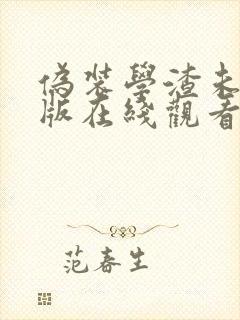 偽裝學渣未
版在綫觀看
范春生